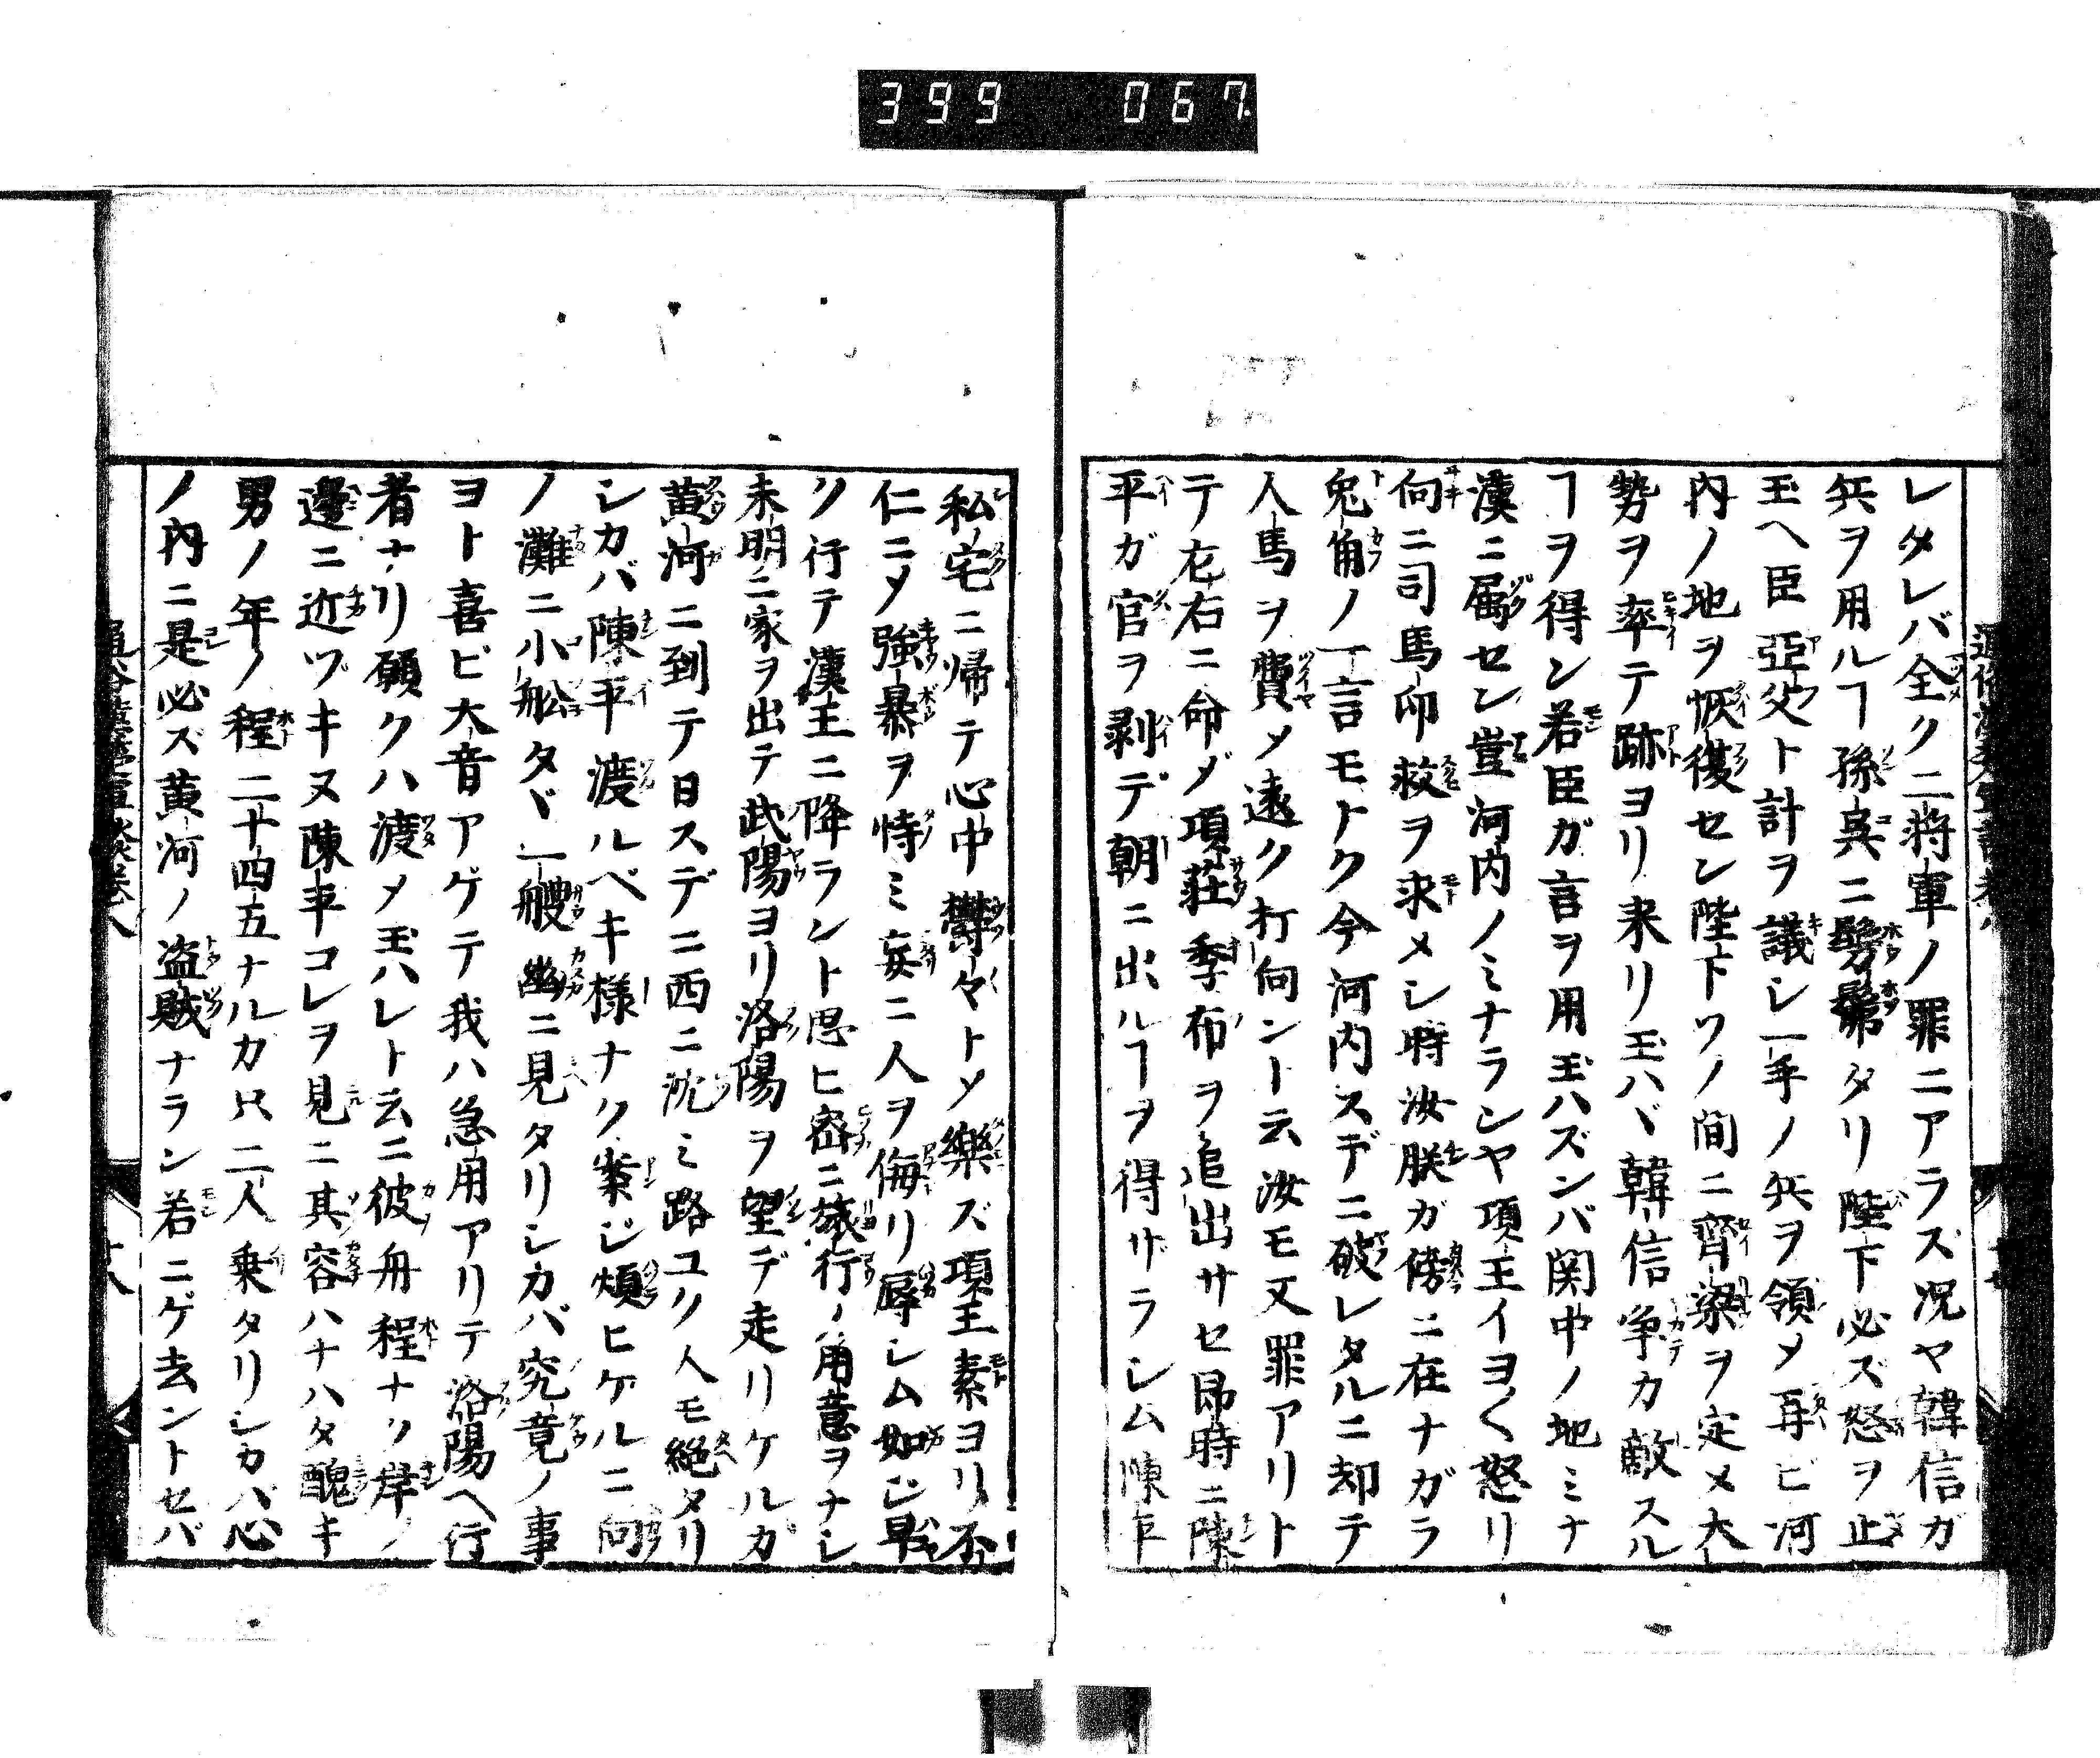 399 067
レタレバ全ク二將軍ノ罪ニアラズ况ヤ韓信ガ
兵ヲ用ルヿ孫呉ニ髣髴タリ陛下必ズ怒ヲ止
玉ヘ臣亞父ト計ヲ議シ一手ノ兵ヲ領メ再ビ河
內ノ地ヲ恢復セン陛下ワノ間ニ齊梁ヲ定メ大
勢ヲ率テ跡ヨリ来リ玉ハヾ韓信争カ敵スル
ヿヲ得ン若臣ガ言ヲ用玉ハズンバ関中ノ地ミナ
漢ニ属セン豈河内ノミナランヤ項王イヨ〱怒リ
向ニ司馬卬救ヲ求メシ時汝朕ガ傍ニ在ナガラ
兎角ノ一言モトク今河内スデニ破レタルニ却テ
人馬ヲ費メ遠ク打向ント云汝モ又罪アリト
テ左右ニ命ゾ項莊季布ヲ追出サセ即時ニ陳
平ガ官ヲ剥デ朝ニ出ルヿヲ得ザラシム陳平
私宅ニ帰テ心中欝々トメ樂ズ項王素ヨリ不
仁ニメ強暴ヲ恃ミ妄ニ人ヲ侮リ辱シム如ジ早
ク行テ漢王ニ降ラント思ヒ密ニ旅行ノ用意ヲナシ
未明ニ家ヲ出テ武陽ヨリ洛陽ヲ望デ走リケルガ
黄河ニ到テ日スデニ西ニ沈ミ路ユク人モ絶タリ
シカバ陳平渡ルベキ様ナク案ジ煩ヒケルニ向
ノ灘ニ小舩タヾ一艘幽ニ見タリシカバ究竟ノ事
ヨト喜ビ大音アゲテ我ハ急用アリテ洛陽ヘ行
者ナリ願クハ渡メ玉ハレト云ニ彼舟程ナク岸ノ
邊ニ近ヅキヌ陳平コレヲ見ニ其容ハナハタ醜キ
男ノ年ノ程二十四五ナルカ只二人乗タリシカバ心
ノ內ニ是必ズ黄河ノ盗賊ナラン若ニゲ去ントセバ